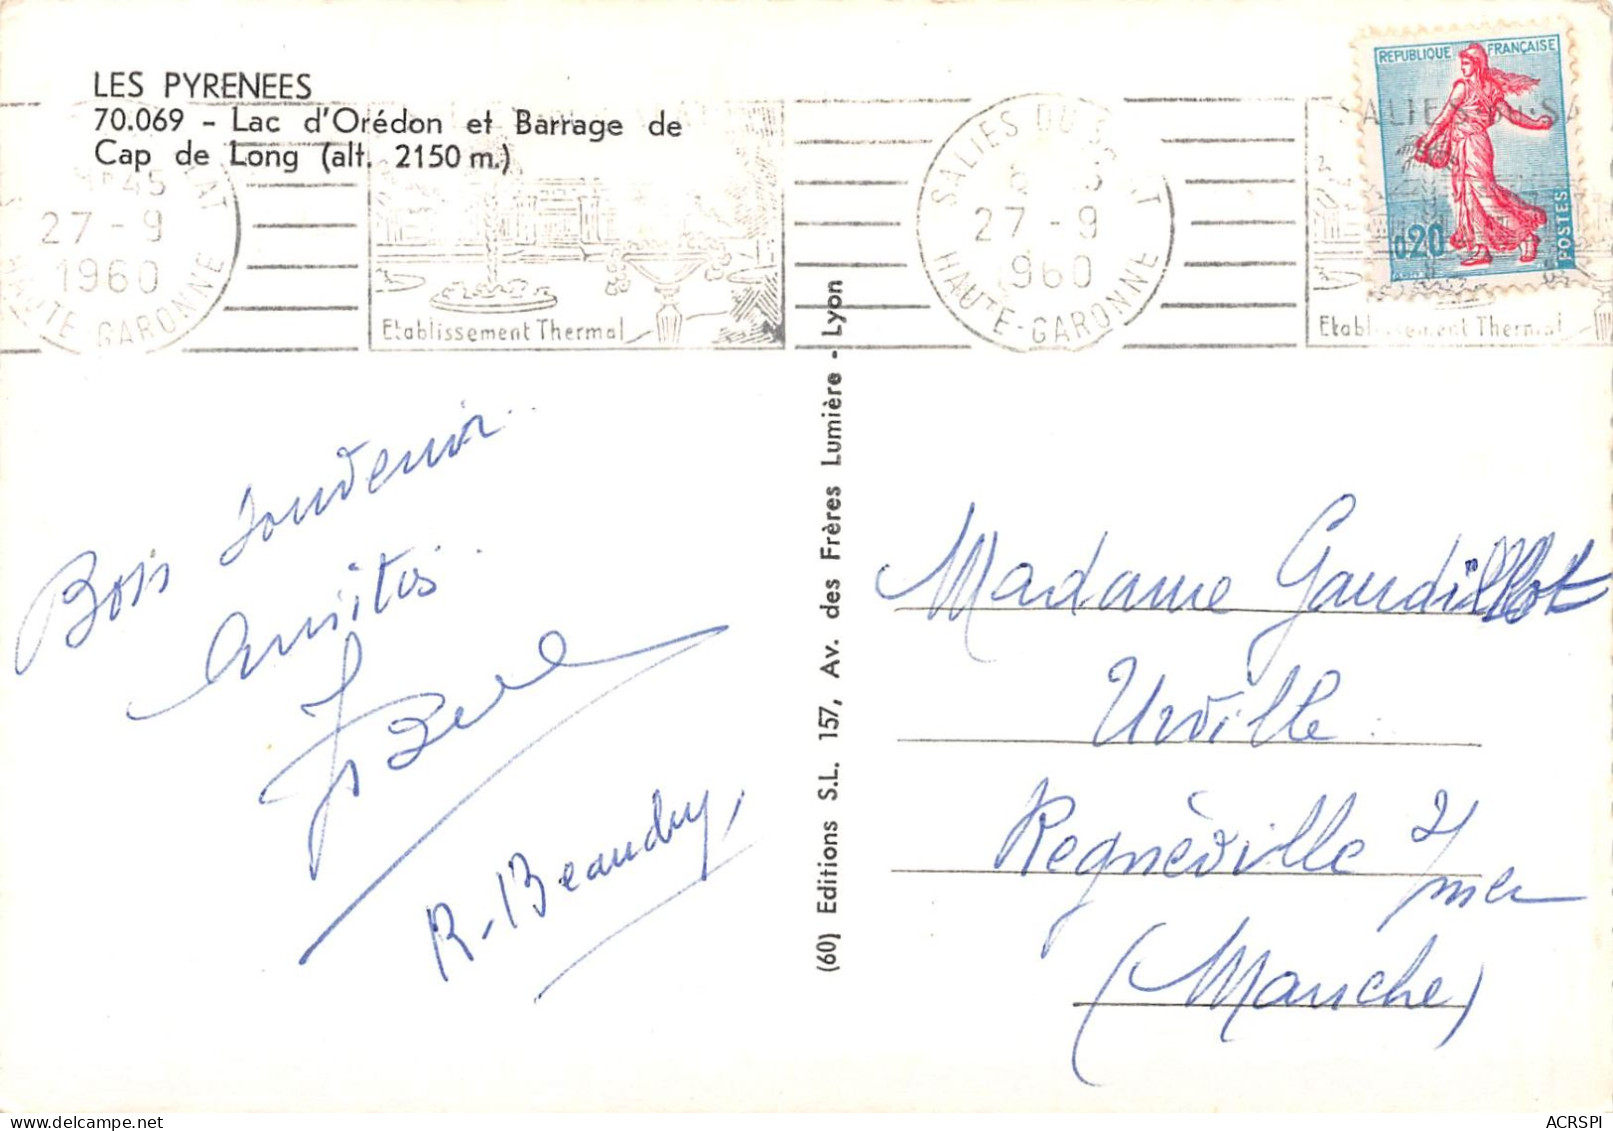 LES PYRENEES
70.069 - Lac d'Orédon et Barrage de
Cap de Long (alt. 2150 m.)
REPUBLIQUE FRANÇAISE
0,20
POSTES
45
27 - 9
1960
HAUTE-GARONNE
Etablissement Thermal
SALIES DU SALAT
27 - 9
1960
HAUTE-GARONNE
SALIES DU SA
Etablissement Thermal
Bon Souvenir
Amitiés
R. Beaudry,
(60) Editions S.L. 157, Av. des Frères Lumière - Lyon
Madame Gaudillot
Urville
Regnéville s/
mer
(Manche)
ACRSPI